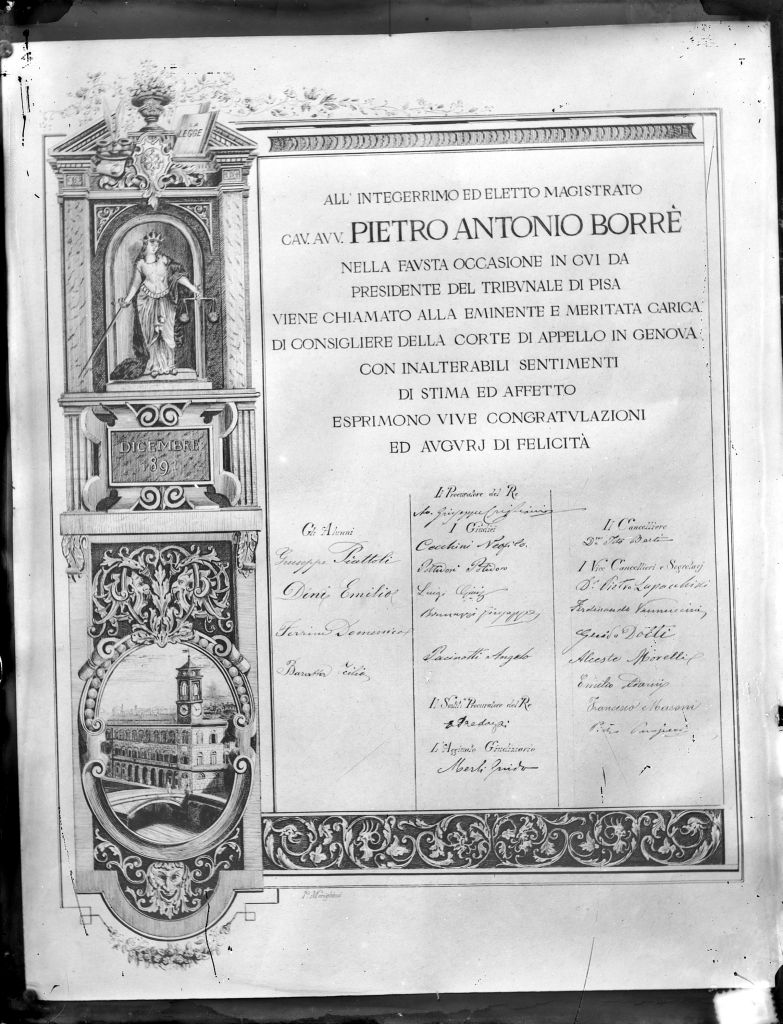 LEGGE
ALL' INTEGERRIMO ED ELETTO MAGISTRATO
CAV. AVV. PIETRO ANTONIO BORRÈ
NELLA FAVSTA OCCASIONE IN CVI DA
PRESIDENTE DEL TRIBVNALE DI PISA
VIENE CHIAMATO ALLA EMINENTE E MERITATA CARICA
DI CONSIGLIERE DELLA CORTE DI APPELLO IN GENOVA
CON INALTERABILI SENTIMENTI
DI STIMA ED AFFETTO
ESPRIMONO VIVE CONGRATVLAZIONI
ED AVGVRJ DI FELICITÀ
DICEMBRE
1891
Gli Alunni
Giuseppe Picottoli
Dini Emilio
Ferrini Domenico
Il Procuratore del Re
Av. Giuseppe
I Giudici
Cecchini Neofilo
Luigi
Giuseppe
Pacinotti Angelo
Il Sostit. Procuratore del Re
L'Aggiunto Giudiziario
Merli Guido
Il Cancelliere
I Vice Cancellieri e Segretarj
Dr. Pietro
Ferdinando Vannuccini
Guido Dotti
Alceste Morelli
Emilio
Francesco Masoni
Pietro